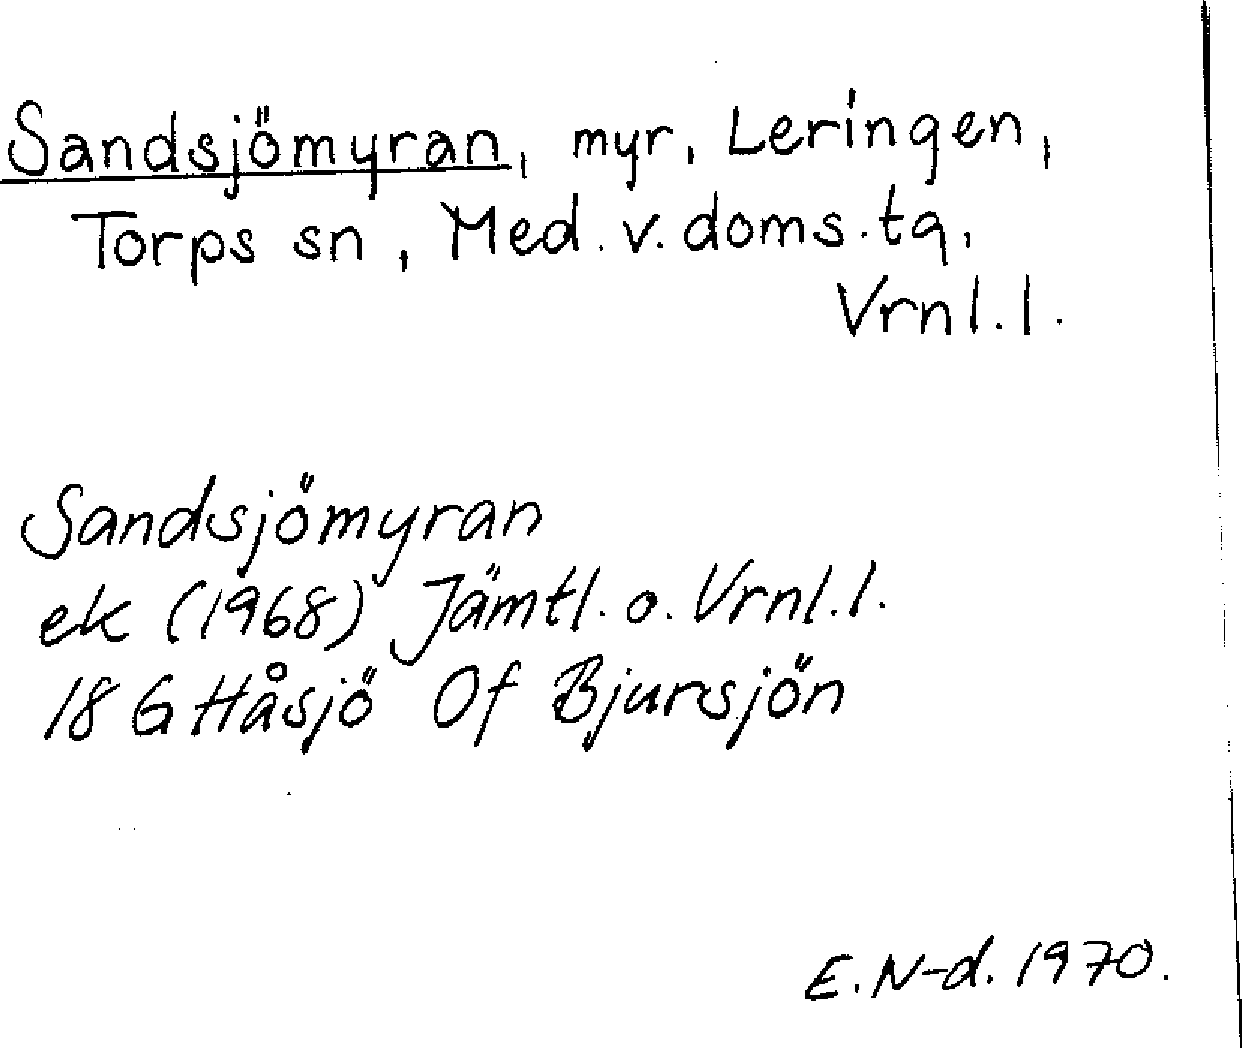 Sandsjömyran, myr, Leringen,
Torps sn, Med. v. doms. tg,
Vrnl. l.
Sandsjömyran
ek (1968) Jämtl. o. Vrnl. l.
18 G Håsjö Of Bjursjön
E. N-d. 1970.